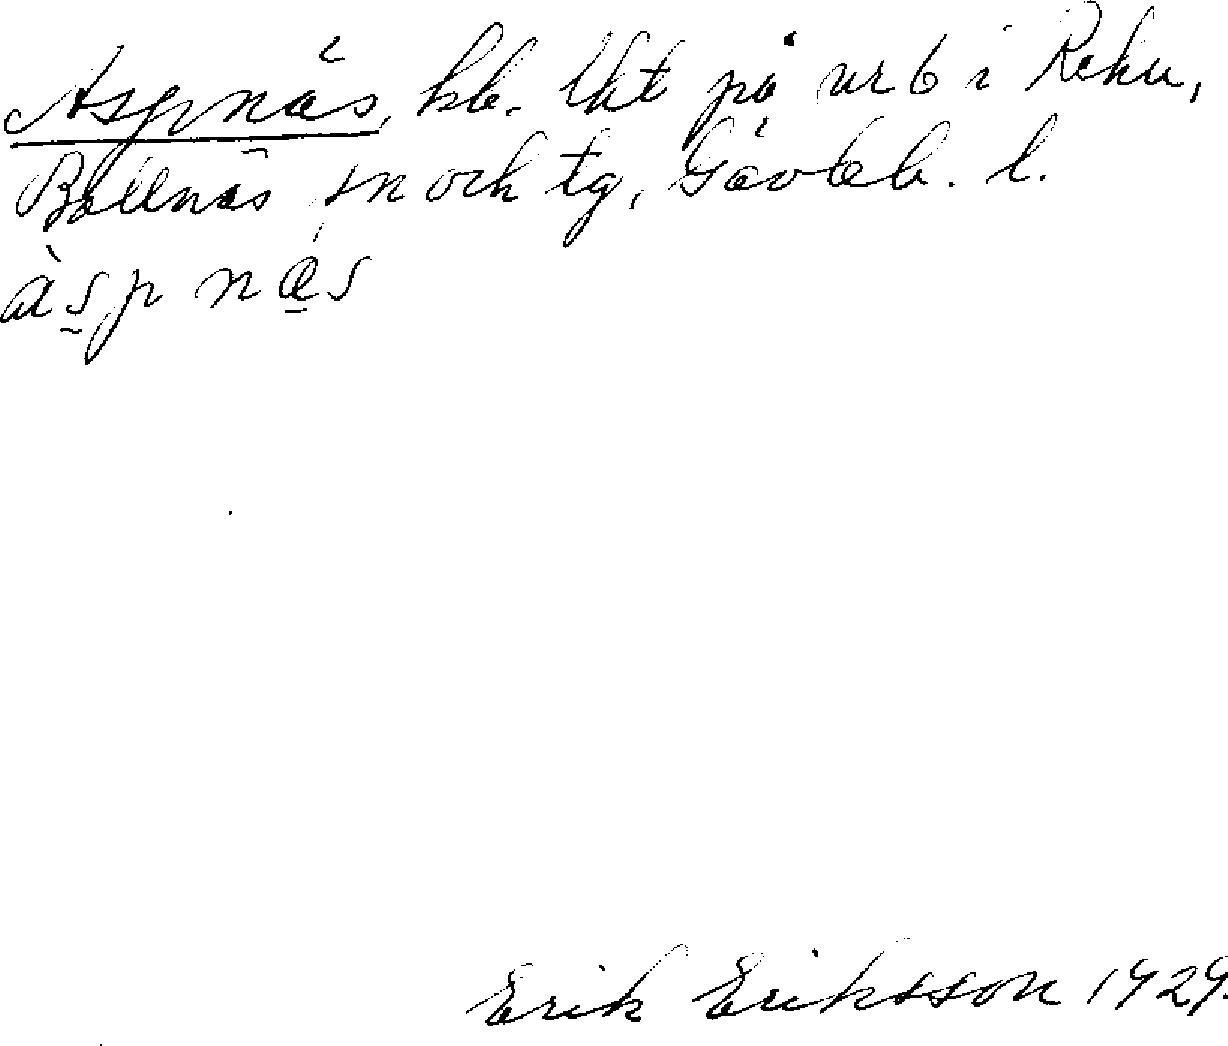 Aspnäs, kb. Utt på nr 6 i Rehn,
Bollnäs sn och tg, Gävleb. l.
àspnǽs
Erik Eriksson 1929.